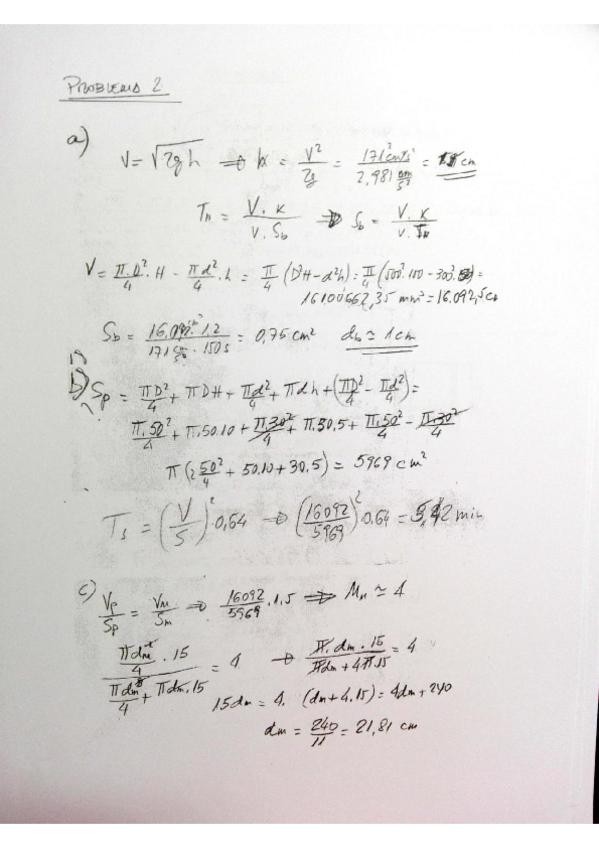 PROBLEMA 2
a)
V = √2gh ⇒ h = V²/2g = 171² cm²/s² / 2,981 cm/s² = 15 cm
Tₙ = V.K / v.S_b ⇒ S_b = V.K / v.Tₙ
V = π.D²/4 . H - πd²/4 . h = π/4 (D²H - d²h) = π/4 (500².100 - 300².50) =
16100662,35 mm³ = 16.092,5 cm
S_b = 16.092 . 1.2 / 171 cm/s . 150 s = 0,75 cm² d_b ≃ 1 cm
b) S_p = πD²/4 + πDH + πd²/4 + πdh + (πD²/4 - πd²/4) =
π.50²/4 + π.50.10 + π.30²/4 + π.30.5 + π.50²/4 - π.30²/4
π (2 50²/4 + 50.10 + 30.5) = 5969 cm²
T_s = (V/S)² . 0,64 ⇒ (16092/5969)² 0,64 = 5,12 min
c) V_p/S_p = V_m/S_m ⇒ 16092/5969 . 1,5 ⇒ Mₙ ≃ 4
πdm²/4 . 15 / πdm²/4 + πdm.15 = 4 → π.dm.15 / πdm + 4π.15 = 4
15dm = 4. (dm + 4.15) = 4dm + 240
dm = 240/11 = 21,81 cm